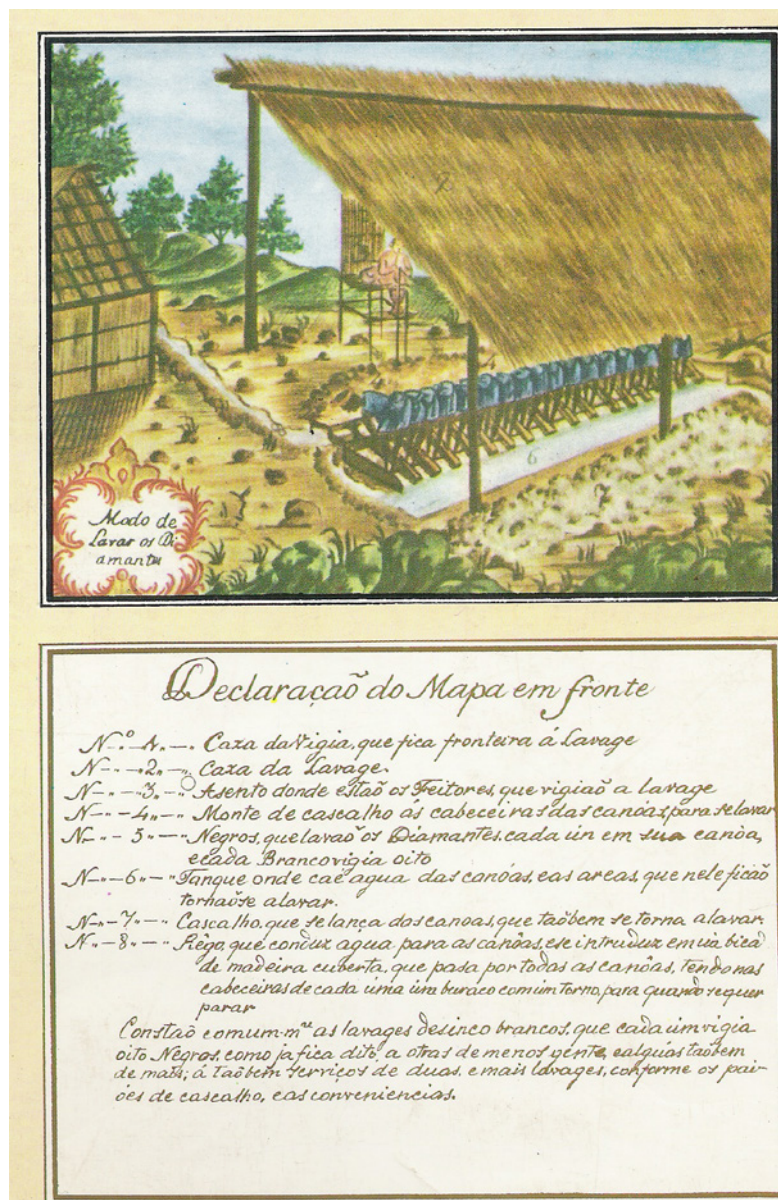 2
6
7
Modo de
Lavar os Di
amantes
Declaraçaõ do Mapa em fronte
N.º 1. Caza da Vigia, que fica fronteira á Lavage
N 2 Caza da Lavage.
N 3 Asento donde estaõ os Feitores, que vigiaõ a lavage
N 4 Monte de cascalho ás cabeceiras das canôas, para se lavar
N 5 Negros, que lavaõ os Diamantes, cada ún em sua canôa,
e cada Branco vigia oito
N 6 Tanque onde cae agua das canôas, e as areas, que nele ficaõ
tornaõse a lavar.
N 7 Cascalho, que se lança das canoas, que taõbem se torna a lavar.
N 8 Rêgo, que conduz agua para as canôas, e se introduz em ũa bica
de madeira cuberta, que pasa por todas as canôas, tendo nas
cabeceiras de cada ũma ũm buraco com ũm torno, para quando se quer
parar
Constaõ comum.mte as lavages de sinco brancos, que cada ũm vigia
oito Negros, como ja fica dito, a otras de menos gente, e algũas taõbem
de mais; á taõbem serviços de duas, e mais lavages, conforme os pai-
óes de cascalho, e as conveniencias.